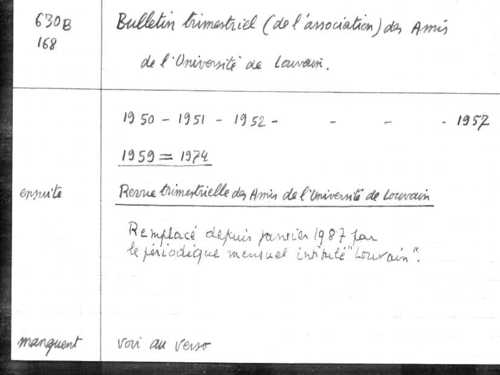 630B
168
Bulletin trimestriel (de l'association) des Amis
de l'Université de Louvain.
1950 - 1951 - 1952 - - - - 1957
1959 = 1974
ensuite
Revue trimestrielle des Amis de l'Université de Louvain
Remplacé depuis janvier 1987 par
le périodique mensuel intitulé "Louvain".
manquent
voir au verso